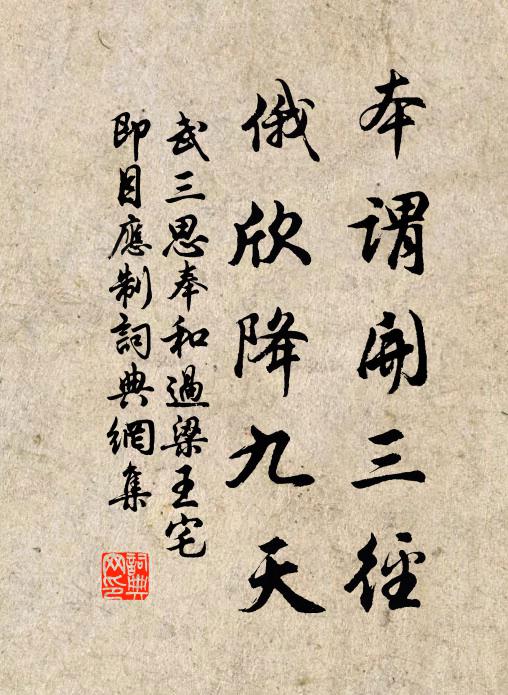 本谓開三徑
俄欣降九天
武三思奉和過梁王宅
即目應制詞典網集
詞典
网印